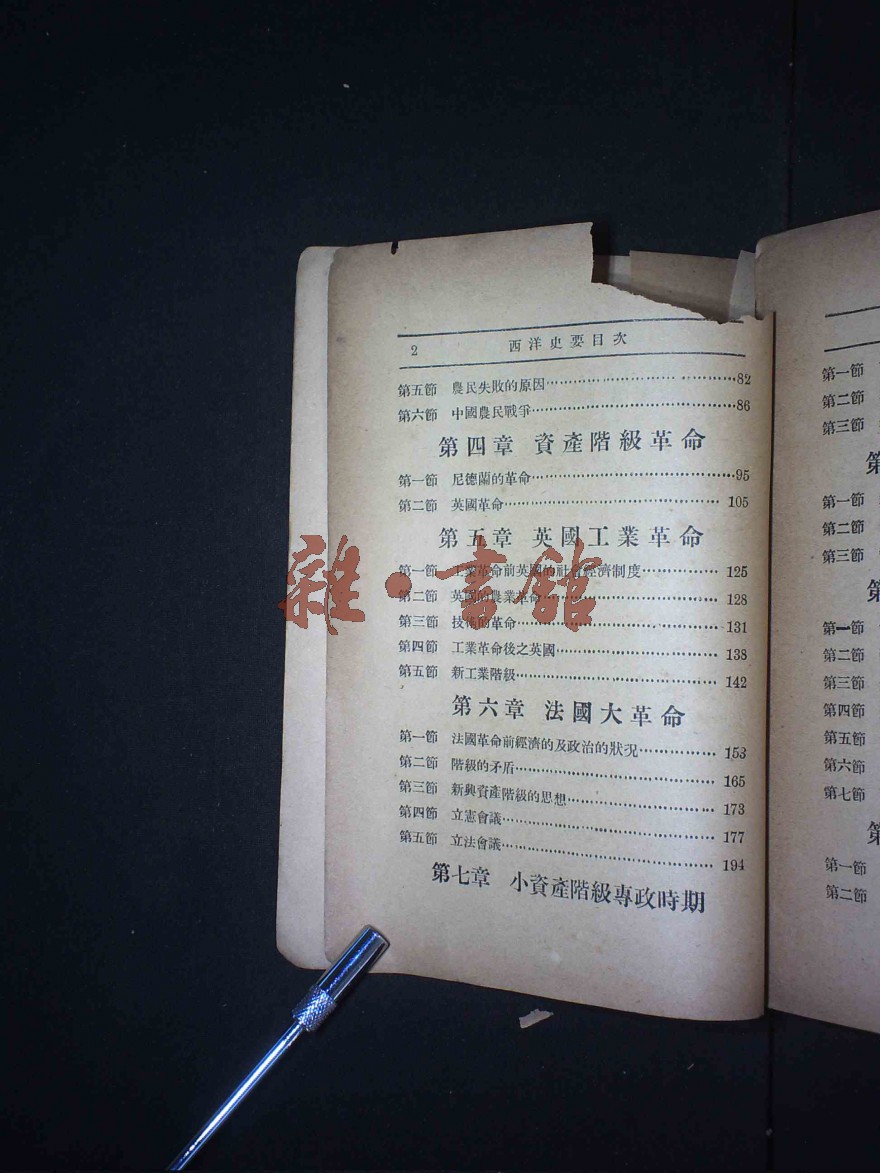 2 西洋史要目次
第五節 農民失敗的原因……82
第六節 中國農民戰爭……86
第四章 資產階級革命
第一節 尼德蘭的革命……95
第二節 英國革命……105
第五章 英國工業革命
第一節 工業革命前英國的社會經濟制度……125
第二節 英國的農業革命……128
第三節 技術的革命……131
第四節 工業革命後之英國……138
第五節 新工業階級……142
第六章 法國大革命
第一節 法國革命前經濟的及政治的狀況……153
第二節 階級的矛盾……165
第三節 新興資產階級的思想……173
第四節 立憲會議……177
第五節 立法會議……194
第七章 小資產階級專政時期
雜·書館
第一節
第二節
第三節
第
第一節
第二節
第三節
第
第一節
第二節
第三節
第四節
第五節
第六節
第七節
第
第一節
第二節